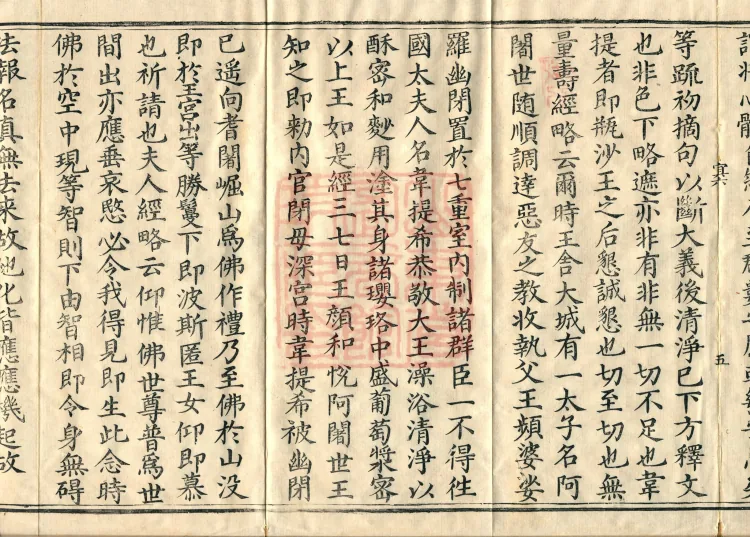 等䟽初摘句以斷大義後清淨已下方釋文
也非色下略遮亦非有非無一切不足也韋
提者即瓶沙王之后懇誠懇也切至切也無
量壽經略云爾時王舍大城有一太子名阿
闍世随順調達惡友之教收執父王頻婆娑
宜六
五
羅幽閉置於七重室内制諸群臣一不得往
國太夫人名韋提希恭敬大王澡浴清淨以
酥蜜和麨用塗其身諸瓔珞中盛葡萄漿密
以上王如是經三七日王顔和悅阿闍世王
知之即勑内官閉母深宮時韋提希被幽閉
已遥向耆闍崛山爲佛作禮乃至佛於山没
即於王宮出等勝鬘下即波斯匿王女仰即慕
也祈請也夫人經略云仰惟佛世尊普爲世
間出亦應垂哀愍必令我得見即生此念時
佛於空中現等智則下由智相即令身無碍
法報名真無去來故他化皆應應機起故